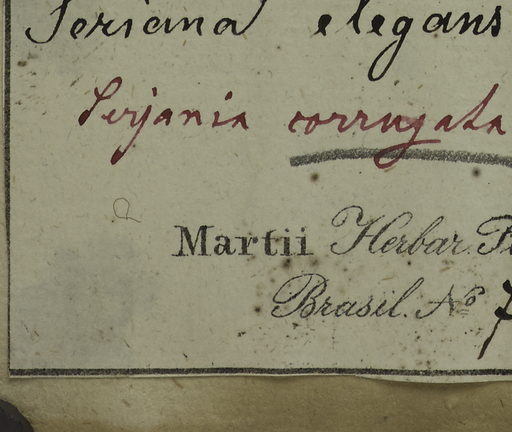 Seriana elegans
Serjania corrugata
Martii Herbar.
Brasil. Nº 7